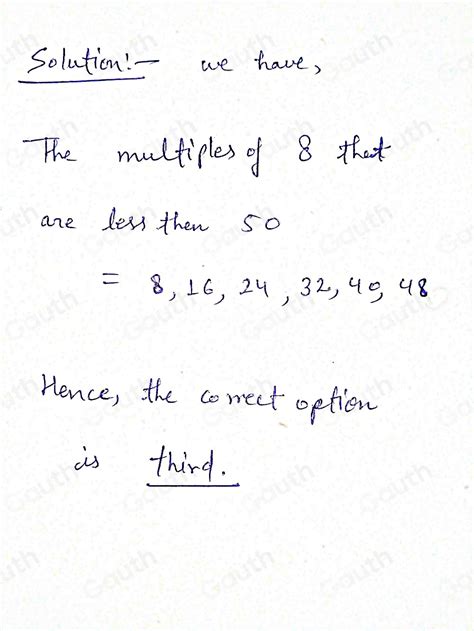 Solution:- we have,
The multiples of 8 that
are less then 50
= 8, 16, 24, 32, 40, 48
Hence, the correct option
is third.